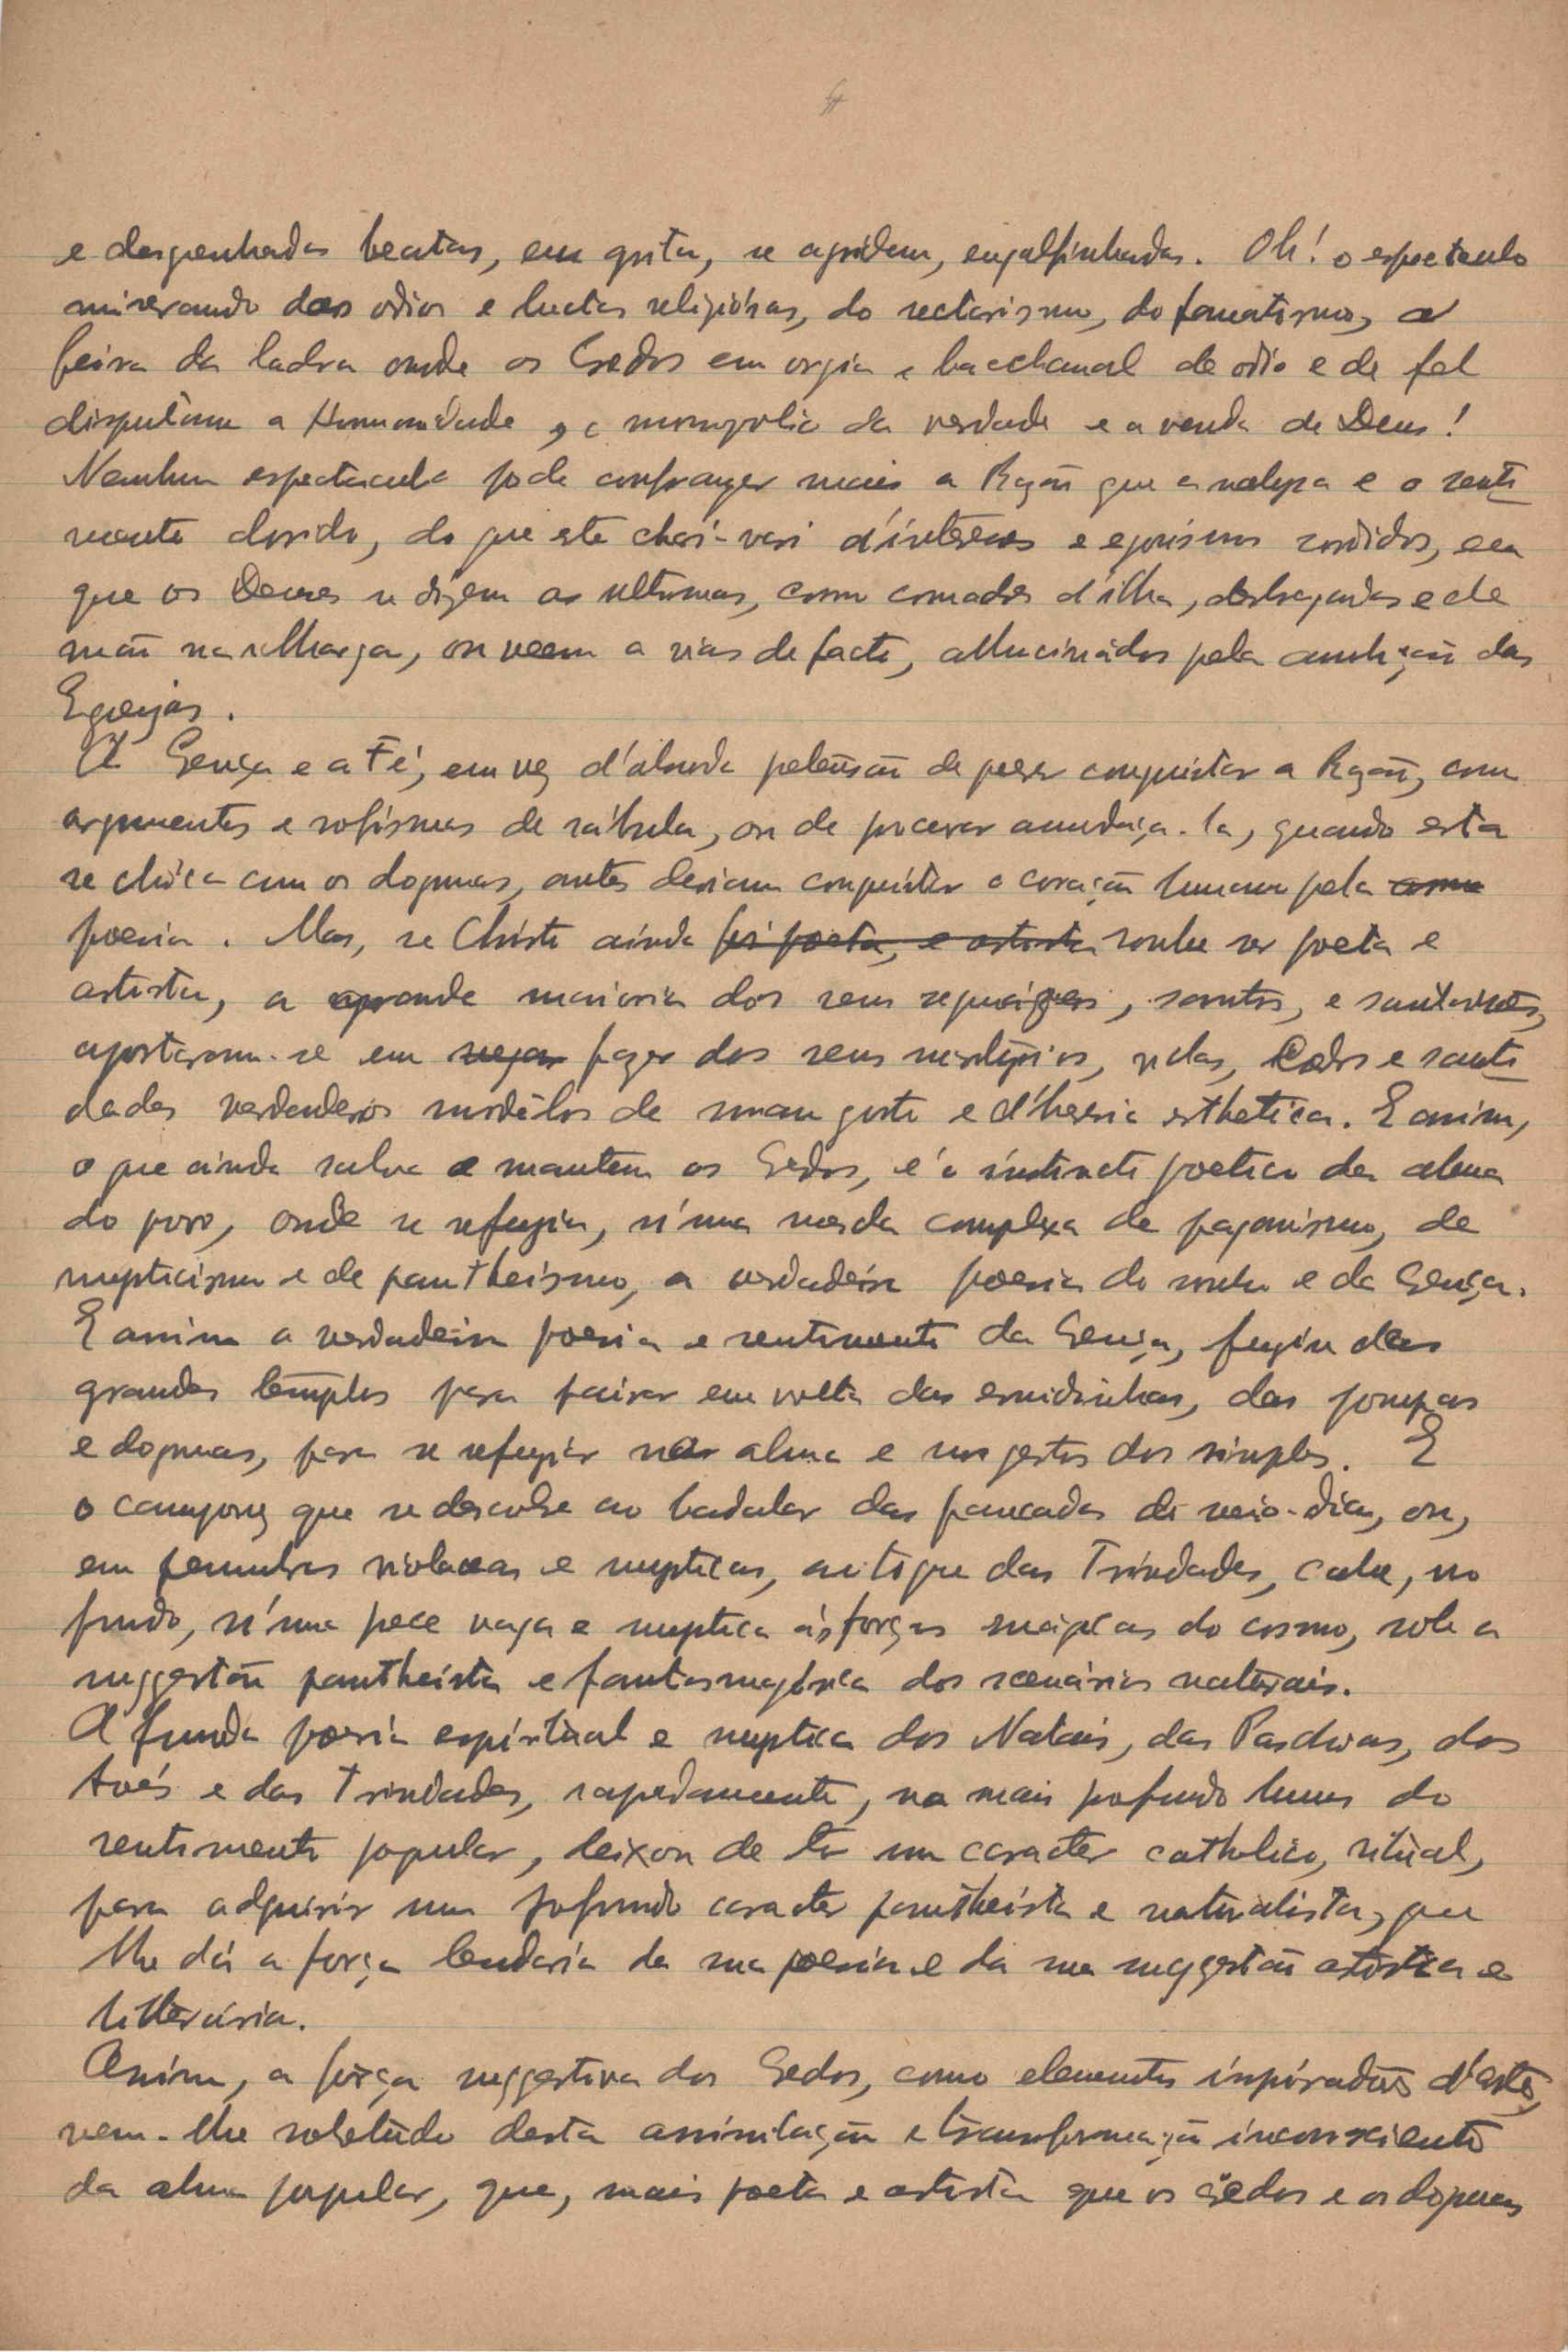 e desgrenhadas beatas, em grita, se agridem, engalfinhadas. Oh! o espectaculo
miserando dos odios e luctas religiósas, do sectarismo, do fanatismo, a
feira da ladra onde os Credos em orgia e bacchanal de odio e de fel
disputam a Humanidade, o monopolio da verdade e a venda de Deus!
Nenhum espectaculo pode confranger mais a Razão que analysa e o senti
mento dorido, do que este chari-vari d'intéresses e egoismos sordidos, em
que os Deuses se dizem as ultimas, como comadres d'ilha, desbragadas e de
mão na ilharga, ou veem a vias de facto, allucinádos pela ambição das
Egrejas.
A Crença e a Fé, em vez d'absurda pretensão de querer conquistar a Razão, com
argumentos e sofismas de rábula, ou de procurar amordaça-la, quando esta
se chóca com os dogmas, antes deviam conquistar o coração humano pela
poesia. Mas, se Christo ainda foi poeta, e artista soube ser poeta e
artista, a grande maioria dos seus sequazes, santos, e santarrões,
apostaram-se em fazer dos seus martyrios, vidas, Credos e santi
dades verdadeiros modêlos de mau gosto e d'heresia esthetica. E assim,
o que ainda salva e mantem os Credos, é o instincto poetico da alma
do povo, onde se refugia, n'uma meada complexa de paganismo, de
mysticismo e de pantheismo, a verdadeira poesia do sonho e da Crença.
E assim a verdadeira poesia e sentimento da Crença, fugiu dos
grandes templos para pairar em volta das ermidinhas, das pompas
e dogmas, para se refugiar na alma e nos gestos dos simples. E
o camponez que se descobre ao badalar das pancadas do meio-dia, ou,
em penumbras violaceas e mysticas, ao toque das Trindades, cahe, no
fundo, n'uma prece vaga e mystica ás forças mágicas do cosmo, sob a
suggestão pantheista e fantasmagórica dos scenários naturais.
A funda poesia espiritual e mystica dos Natais, das Paschoas, dos
Avés e das Trindades, rapidamente, no mais profundo humus do
sentimento popular, deixou de ter um caracter catholico, ritual,
para adquirir um profundo caracter pantheista e naturalista, que
lhe dá a força lendaria da sua poesia e da sua suggestão artistica e
litterária.
Assim, a força suggestiva dos Credos, como elementos inspiradores d'arte,
vem-lhe sobretudo desta assimilação e transformação inconsciente
da alma popular, que, mais poeta e artista que os Credos e os dogmas